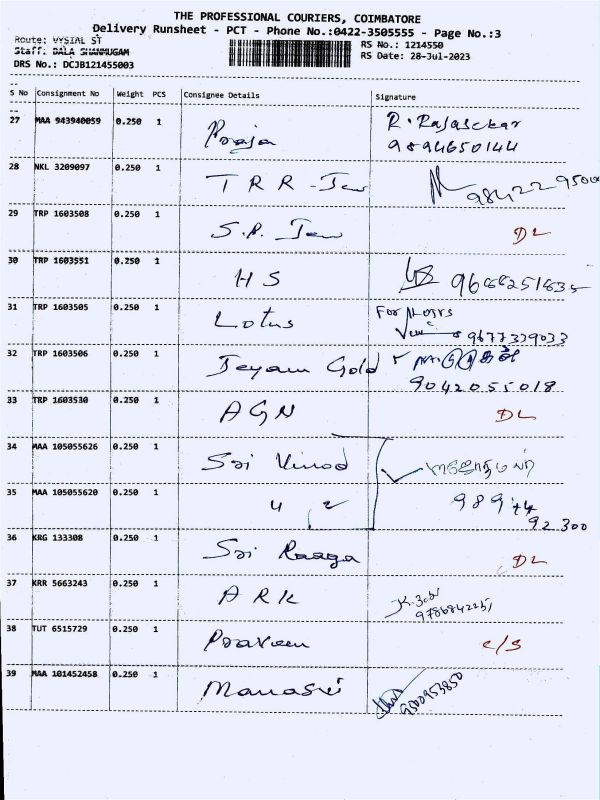 THE PROFESSIONAL COURIERS, COIMBATORE
Delivery Runsheet - PCT - Phone No.:0422-3505555 - Page No.:3
Route: VYSIAL ST
RS No.: 1214550
Staff: BALA SHANMUGAM
RS Date: 28-Jul-2023
DRS No.: DCJB121455003
S No Consignment No Weight PCS Consignee Details Signature
27 MAA 943940059 0.250 1 Pooja R. Rajasekar
9894650144
28 NKL 3209097 0.250 1 TRR - Jew 98422 9500
29 TRP 1603508 0.250 1 S.P. Jew DL
30 TRP 1603551 0.250 1 HS 9688251835
31 TRP 1603505 0.250 1 Lotus For
9677339033
32 TRP 1603506 0.250 1 Jeyam Gold
9042055018
33 TRP 1603530 0.250 1 AGN DL
34 MAA 105055626 0.250 1 Sri Vinod
35 MAA 105055620 0.250 1 989 44
92 300
36 KRG 133308 0.250 1 Sri Raaga DL
37 KRR 5663243 0.250 1 ARK
9786842251
38 TUT 6515729 0.250 1 Praveen c/s
39 MAA 101452458 0.250 1 Manasri 9500953850